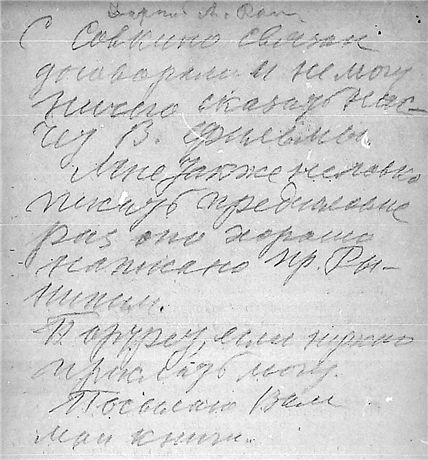 С Совкино связан
договорами и не могу
ничего сказать нас-
чет В. фильмы.
Мне также неловко
писать предисловие
раз оно хорошо
написано пр. Ры-
ниным.
Портрет, если нужно
прислать могу.
Посылаю Вам
мои книги.